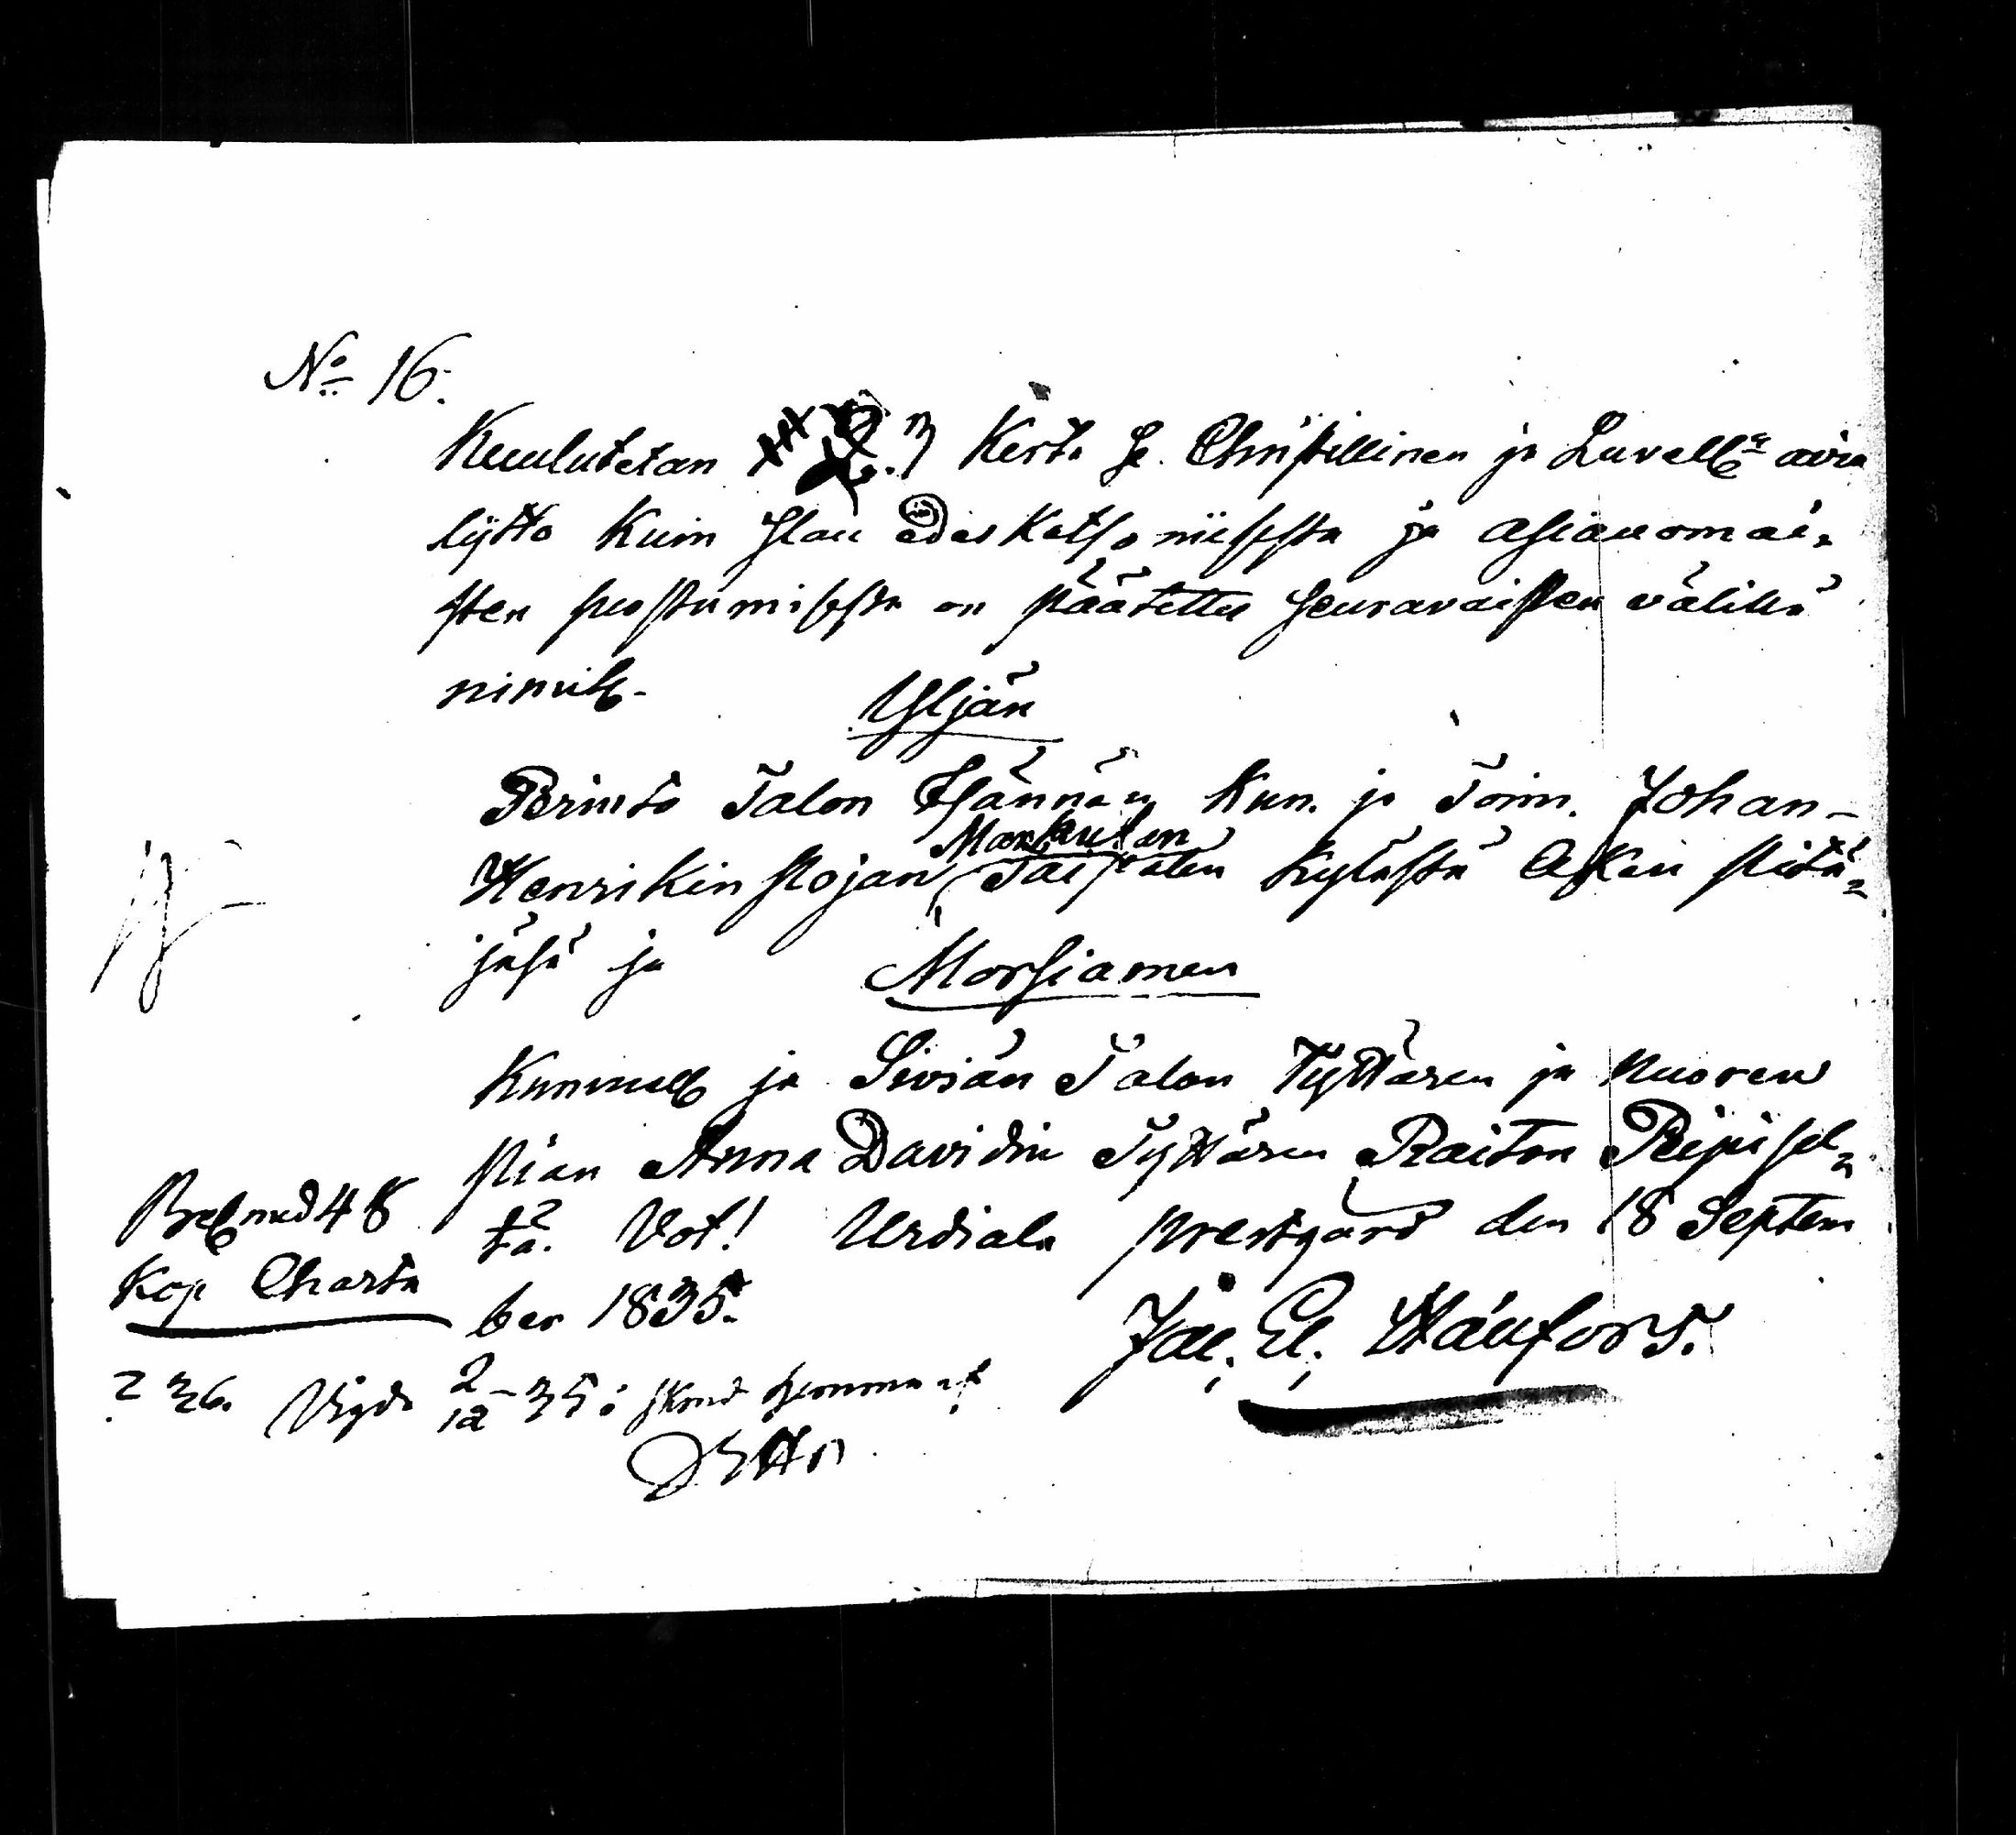 No 16.
Kuulutetan 3 Kerta Se Christillinen ja Luvall: avio
lijtto Kuin Ilan edes Katsomisesta ja asianomai=
sten suostumisesta on päätetty seuravaisten välillä
nimitt.
Yljän
Perindö Talon Isännän Kun. ja Toim. Johan
Markulan
Henrikin pojan Taipalen Kylästä Akan pitä=
jäsä ja
Morsiamen
Kunniall ja Sivian Talon Tyttären ja Nuoren
pian Anna Davidin Tyttären Raiton Pepisel=
tä. Vot! Urdiala prestgård den 18 Septem
ber 1835.
Jac. El. Stånfors.
Bel. med 48
Kop Charta
Vigde 2/12 35